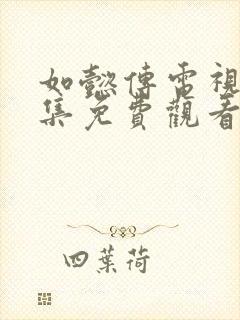 如懿傳電視
集免費觀看
四葉荷